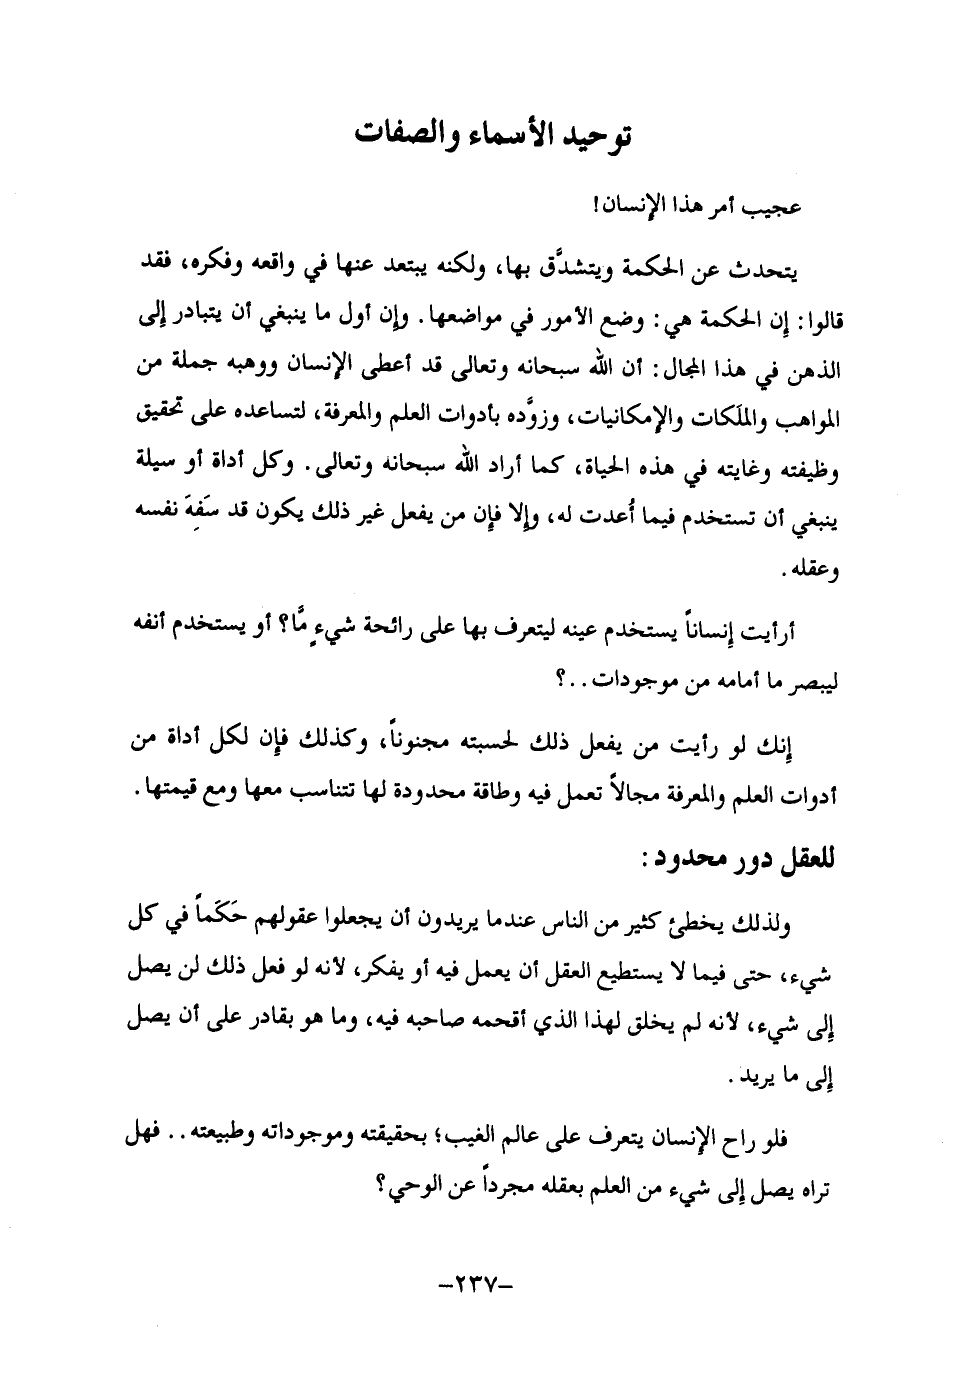 توحيد الأسماء والصفات
عجيب أمر هذا الإنسان!
يتحدث عن الحكمة ويتشدَّق بها، ولكنه يبتعد عنها في واقعه وفكره، فقد
قالوا: إن الحكمة هي: وضع الأمور في مواضعها. وإن أول ما ينبغي أن يتبادر إلى
الذهن في هذا المجال: أن الله سبحانه وتعالى قد أعطى الإنسان ووهبه جملة من
المواهب والملَكات والإمكانيات، وزوَّده بأدوات العلم والمعرفة، لتساعده على تحقيق
وظيفته وغايته في هذه الحياة، كما أراد الله سبحانه وتعالى. وكل أداة أو سيلة
ينبغي أن تستخدم فيما أُعدت له، وإلا فإن من يفعل غير ذلك يكون قد سَفِهَ نفسه
وعقله.
أرأيت إنساناً يستخدم عينه ليتعرف بها على رائحة شيءٍ مَّا؟ أو يستخدم أنفه
ليبصر ما أمامه من موجودات..؟
إنك لو رأيت من يفعل ذلك لحسبته مجنوناً، وكذلك فإن لكل أداة من
أدوات العلم والمعرفة مجالاً تعمل فيه وطاقة محدودة لها تتناسب معها ومع قيمتها.
للعقل دور محدود:
ولذلك يخطئ كثير من الناس عندما يريدون أن يجعلوا عقولهم حَكَماً في كل
شيء، حتى فيما لا يستطيع العقل أن يعمل فيه أو يفكر، لأنه لو فعل ذلك لن يصل
إلى شيء، لأنه لم يخلق لهذا الذي أقحمه صاحبه فيه، وما هو بقادر على أن يصل
إلى ما يريد.
فلو راح الإنسان يتعرف على عالم الغيب؛ بحقيقته وموجوداته وطبيعته.. فهل
تراه يصل إلى شيء من العلم بعقله مجرداً عن الوحي؟
-٢٣٧-